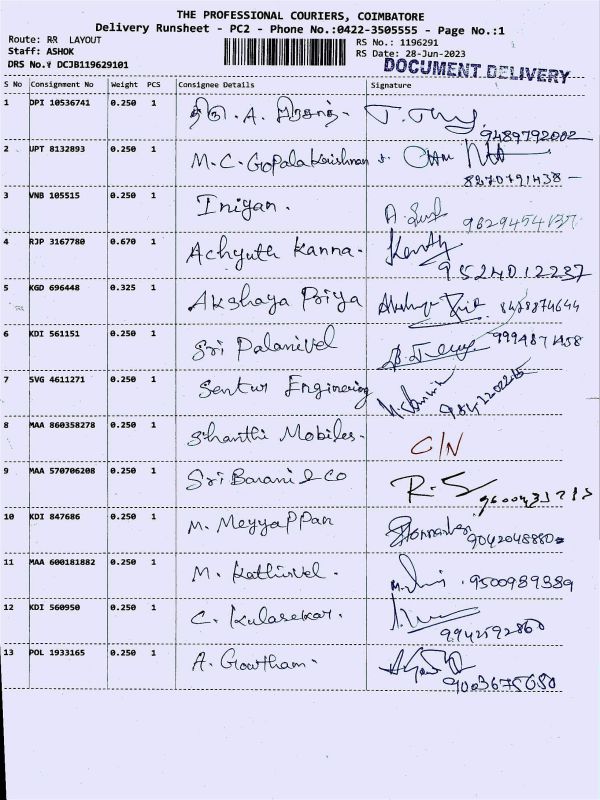 THE PROFESSIONAL COURIERS, COIMBATORE
Delivery Runsheet - PC2 - Phone No.:0422-3505555 - Page No.:1
Route: RR LAYOUT
RS No.: 1196291
Staff: ASHOK
RS Date: 28-Jun-2023
DRS No.: DCJB119629101
DOCUMENT DELIVERY
S No Consignment No Weight PCS Consignee Details Signature
1 DPI 10536741 0.250 1 திரு. A.
9489792002
2 UPT 8132893 0.250 1 M.C. Gopalakrishnan
8270791438
3 VNB 105515 0.250 1 Iniyan.
9629454137
4 RJP 3167780 0.670 1 Achyuth Kanna.
9524012237
5 KGD 696448 0.325 1 Akshaya Priya 8428874644
6 KDI 561151 0.250 1 Sri Palanivel 9994871458
7 SVG 4611271 0.250 1 Sentur Enginering
8 MAA 860358278 0.250 1 Shanthi Mobiles. C/N
9 MAA 570706208 0.250 1 Sri Barani & Co R.S
10 KDI 847686 0.250 1 M. Meyyappan
9042048880
11 MAA 600181882 0.250 1 M. Kathirvel. 9500989389
12 KDI 560950 0.250 1 C. Kulasekar.
9942592860
13 POL 1933165 0.250 1 A. Gowtham.
9003675080